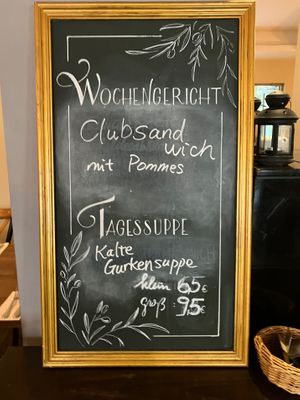 WOCHENGERICHT
Clubsand
wich
mit Pommes
TAGESSUPPE
Kalte
Gurkensuppe
klein 6.5€
groß 9.5€